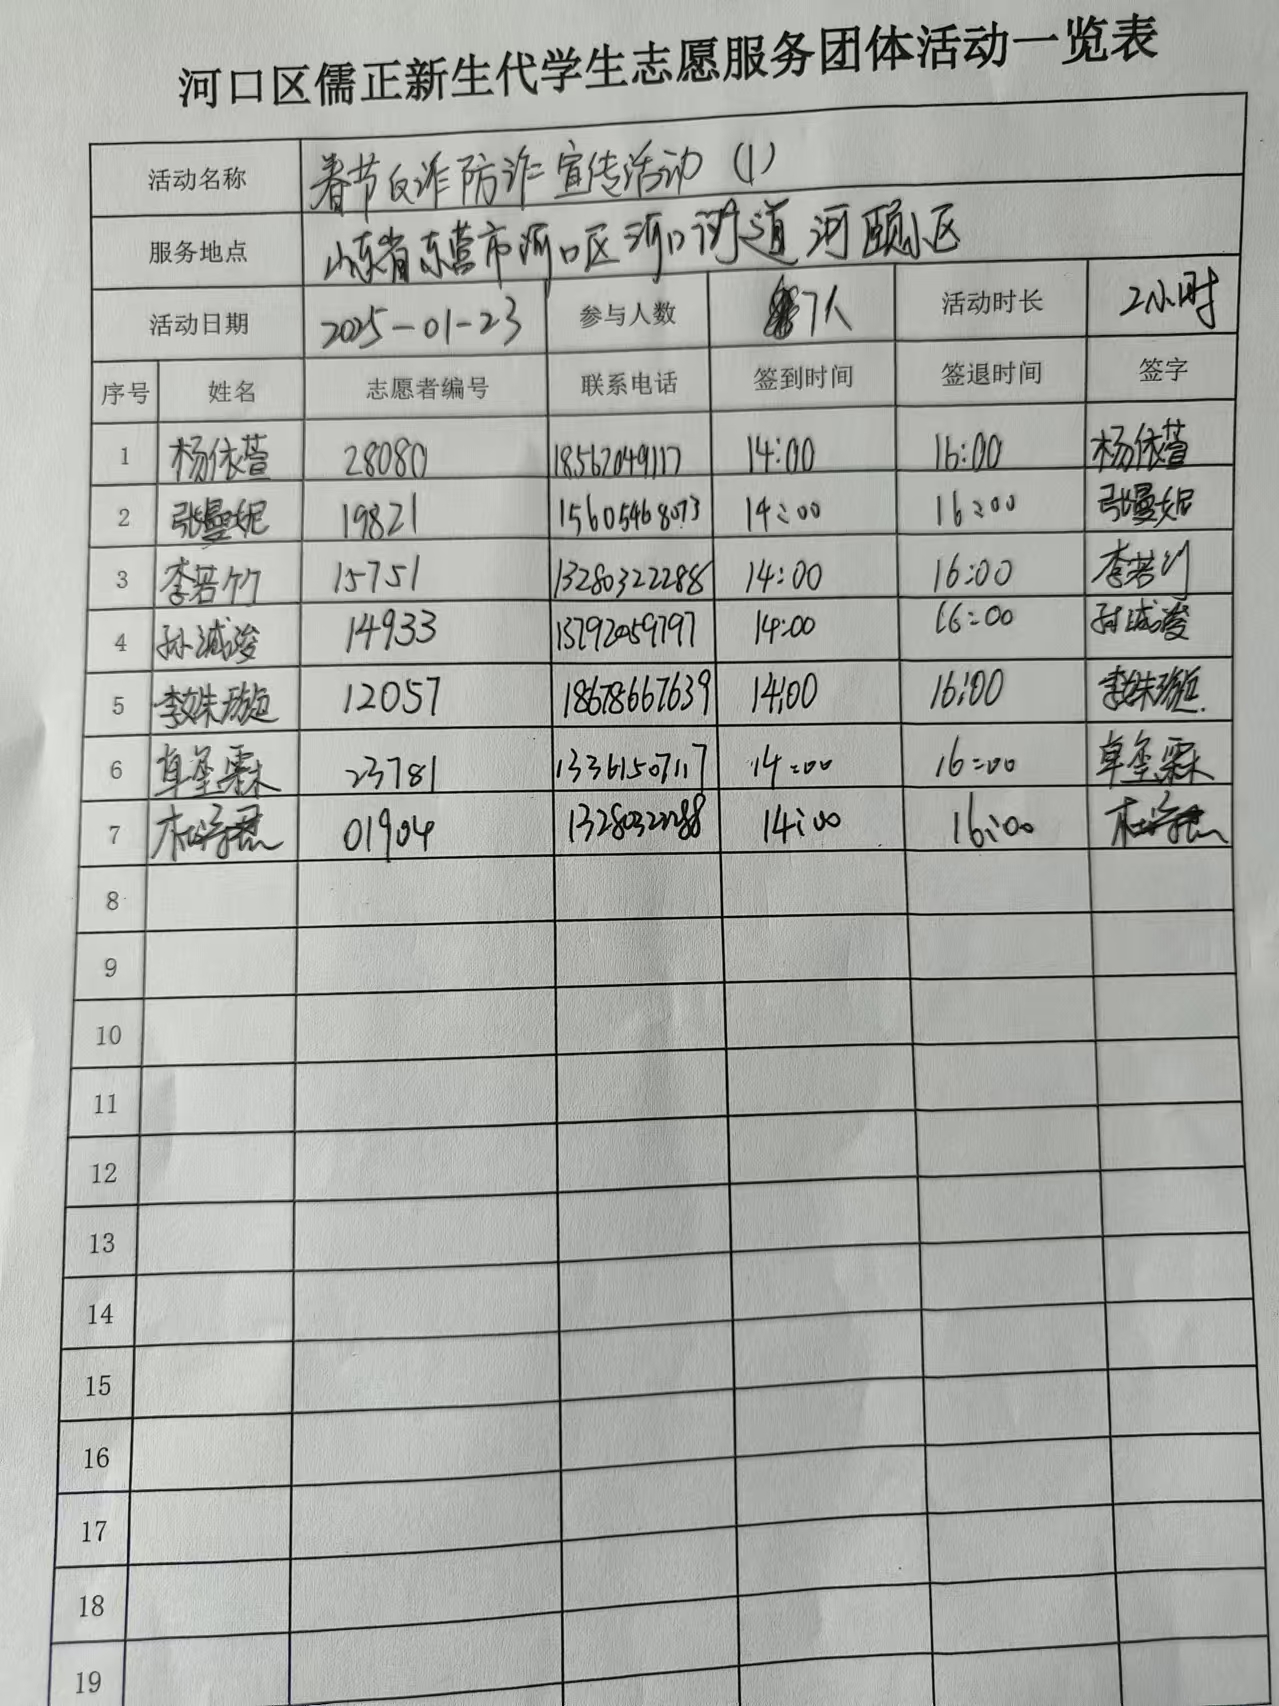 河口区儒正新生代学生志愿服务团体活动一览表
活动名称 春节反诈防诈宣传活动（1）
服务地点 山东省东营市河口区河口街道河颐小区
活动日期 2025-01-23 参与人数 7人 活动时长 2小时
序号 姓名 志愿者编号 联系电话 签到时间 签退时间 签字
1 杨依萱 28080 18562049117 14:00 16:00 杨依萱
2 张曼妮 19821 15605468073 14:00 16:00 张曼妮
3 李若竹 15751 13280322288 14:00 16:00 李若竹
4 孙诚浚 14933 13792059797 14:00 16:00 孙诚浚
5 李姝璇 12057 18678667639 14:00 16:00 李姝璇
6 卓垒霖 23781 13361507117 14:00 16:00 卓垒霖
7 01904 13280322288 14:00 16:00
8
9
10
11
12
13
14
15
16
17
18
19